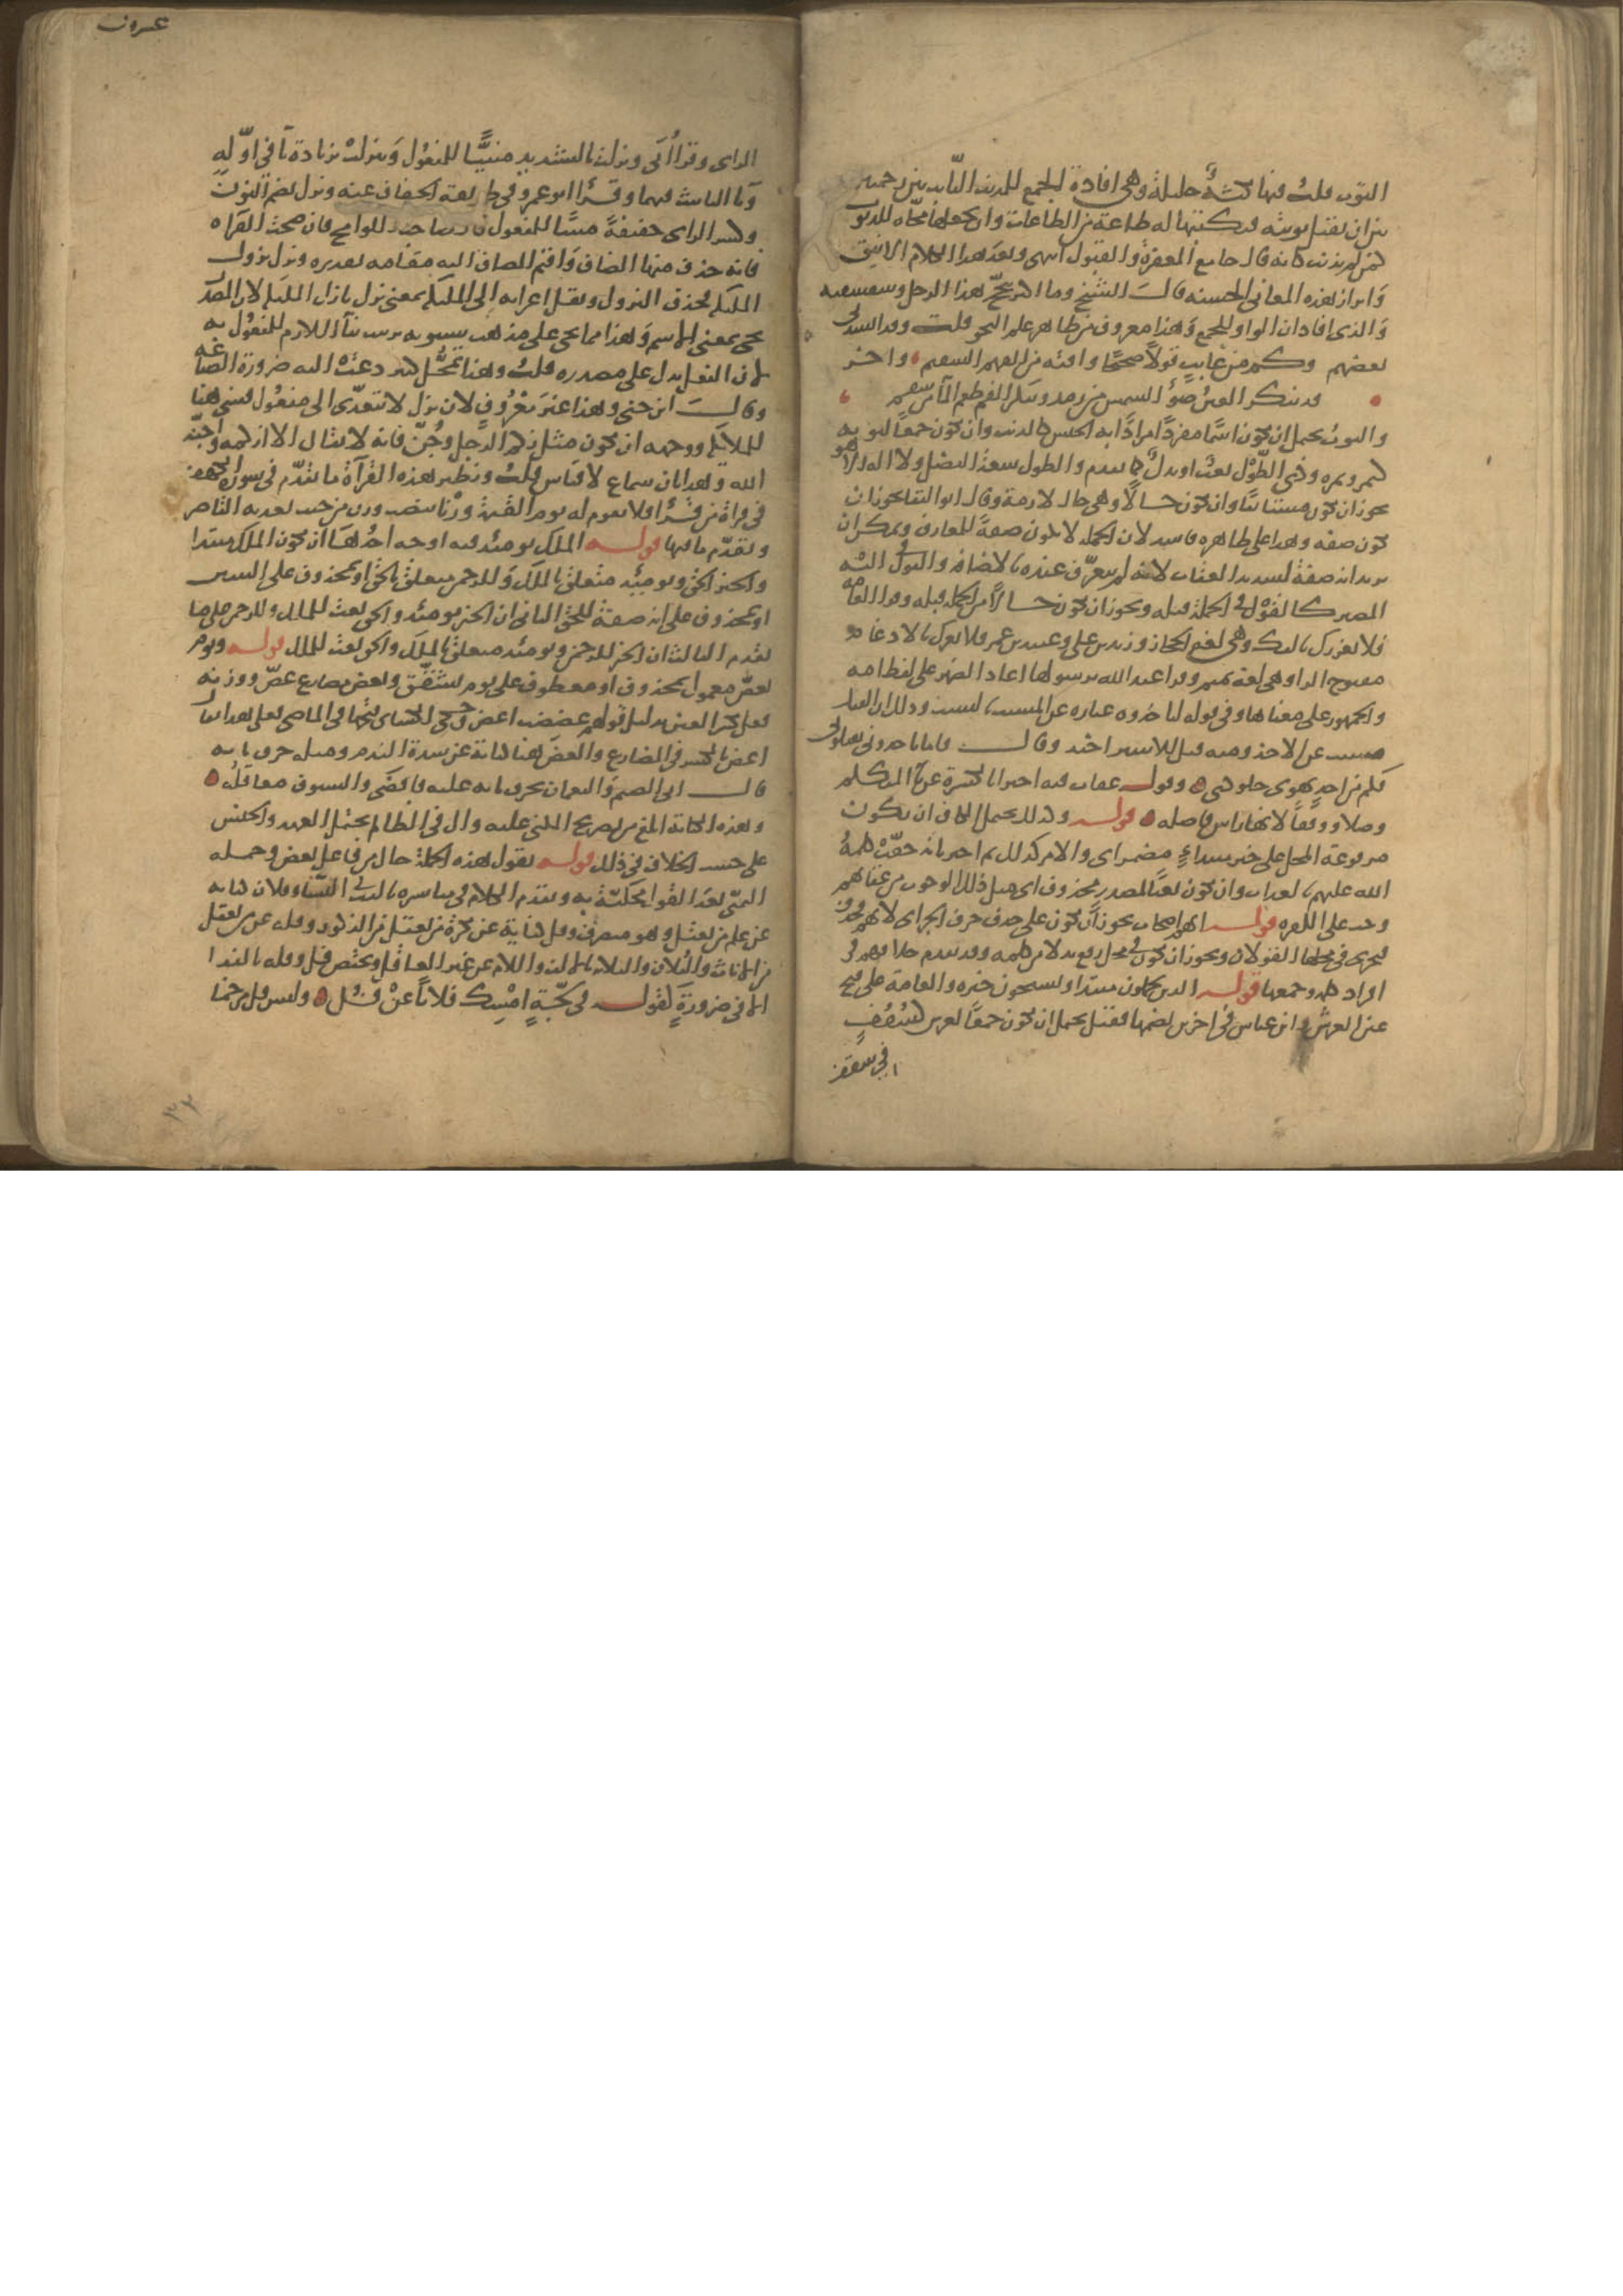 التوب قلت فيها نكتة جليلة وهي افادة الجمع للمذنب التائب بين رحمتين
بين ان يقبل توبته فيكتبها له طاعة من الطاعات وان يجعلها محاة للذنوب
كمن لم يذنب كانه قال جامع المغفرة والقبول انتهى وبعد هذا الكلام الانيق
وابراز هذه المعاني الحسنة قال الشيخ وما اكثر تبجح هذا الرجل وشقشقته
والذي افاد ان الواو للجمع وهذا معروف من ظاهر علم النحو قلت وقد انشدني
بعضهم وكم من عايب قولا صحيحا وافته من الفهم السقيم واخر
قد تنكر العين ضوء الشمس من رمد وينكر الفم طعم الماء من سقم
والتوب يحتمل ان يكون اسما مفردا مرادا به الجنس كالذنب وان يكون جمعا لتوبة
كتمر وتمره وذي الطول نعت او بدل كما تقدم والطول سعة الفضل ولا اله الا هو
يجوز ان يكون مستانفا وان يكون حالا وهي حال لازمة وقال ابو البقا يجوز ان
يكون صفه وهذا على ظاهره فاسد لان الجمله لا يكون صفة للمعارف ويمكن ان
يريد انه صفة لشديد العقاب لانه لم يتعرف عنده بالاضافة والقول في اليه
المصير كالقول في الجملة قبله ويجوز ان يكون حالا من الجمله قبله وقرا العامه
فلا يغررك بالفك وهي لغة الحجاز وزيد بن علي وعبيد بن عمير فلا يغرك بالادغام
مفتوح الرا وهي لغة تميم وقرا عبد الله برسولها اعاد الضمير على لفظ امة
والجمهور على معناها وفي قوله لياخذوه عباره عن المسبب بالسبب وذلك ان القتل
مسبب عن الاخذ ومنه قيل للاسير اخيذ وقال فاما تاخذوني تقتلوني
فكم من احد يهوى خلودي وقوله عقاب فيه اجتزا بالكسرة عن يا المتكلم
وصلا ووقفا لانها راس فاصله قوله وكذلك يحتمل الكاف ان يكون
مرفوعة المحل على خبر مبتداء مضمر اي والامر كذلك ثم اخبر بانه حقت كلمة
الله عليهم بالعذاب وان يكون نعتا لمصدر محذوف اي مثل ذلك الوجوب من عقابهم
وجب على الكفره قوله انهم اصحاب يجوز ان يكون على حذف حرف الجر اي لانهم فحذف
فيجري في محلها القولان ويجوز ان يكون في محل رفع بدلا من كلمه وقد تقدم خلافهم في
افراد كلمه وجمعها قوله الذين يحملون مبتدا ويسبحون خبره والعامة على فتح
عين العرش وابن عباس في اخرين بضمها فقيل يحتمل ان يكون جمعا لعرش كسقف
في سقف
عشرون
الزاي وقرا ابي ونزلت بالتشديد مبنيا للمفعول وتنزلت بزيادة تا في اوله
وتا التانيث فيهما وقرا ابو عمرو في طريقة الخفاف عنه ونزل بضم النون
وكسر الزاي خفيفة مبنيا للمفعول قال صاحب اللوامح فان صحت القراه
فانه حذف منها المضاف واقيم المضاف اليه مقامه تقديره ونزل نزول
الملايكة فحذف النزول ونقل اعرابه الى الملايكة بمعنى نزل نازل الملايكة لان المصدر
يجي بمعنى الاسم وهذا مما يجي على مذهب سيبويه ترتيب بنا اللازم للمفعول به
لان الفعل يدل على مصدره قلت وهذا تمحل كثير دعت اليه ضرورة الصناعة
وقال ابن جني وهذا غير معروف لان نزل لا يتعدى الى مفعول فيبنى هنا
للملايكة ووجهه ان يكون مثل زكم الرجل وجن فانه لا يقال الا ازكمه واجنه
الله وهذا باب سماع لا قياس قلت ونظير هذه القرآة ما تقدم في سورة الكهف
في قراة من قرا فلا يقوم له يوم القيمة وزنا بنصب وزن من حيث تعدية القاصر
وتقدم ما فيها قوله الملك يومئذ فيه اوجه احدها ان يكون الملك مبتدا
والخبر الحق ويومئذ متعلق بالملك وللرحمن متعلق بالحق او بمحذوف على التبيين
او بمحذوف على انه صفة للحق الثاني ان الخبر يومئذ والحق نعت للملك وللرحمن على ما
تقدم الثالث ان الخبر للرحمن ويومئذ متعلق بالملك والحق نعت للملك قوله ويوم
يعض معمول لمحذوف او معطوف على يوم تشقق ويعض مضارع عض ووزنه
فعل بكسر العين بدليل قولهم عضضت اعض وحكى الكسائي فتحها في الماضي فعلى هذا يقال
اعض بالكسر في المضارع والعض هنا كناية عن شدة الندم ومثله حرق نابه
قال ابى الضيم والنعمان يحرق نابه عليه فافضى والسيوف معاقله
وهذه الكناية ابلغ من تصريح المكني عليه وال في الظالم يحتمل العهد والجنس
على حسب الخلاف في ذلك قوله يقول هذه الجملة حال من فاعل يعض وجملة
التمني بعد القول محكية به وتقدم الكلام في مباشره يا لليت في النسا وفلان كناية
عن علم من يعقل وهو منصرف وفل كناية عن نكرة من يعقل من الذكور وفله عن من يعقل
من الاناث والفلان والفلانه بالالف واللام عن غير العاقل ويختص فل وفله بالندا
الا في ضرورة كقوله في لجة امسك فلانا عن فل وليس فل مرخما
٣٢